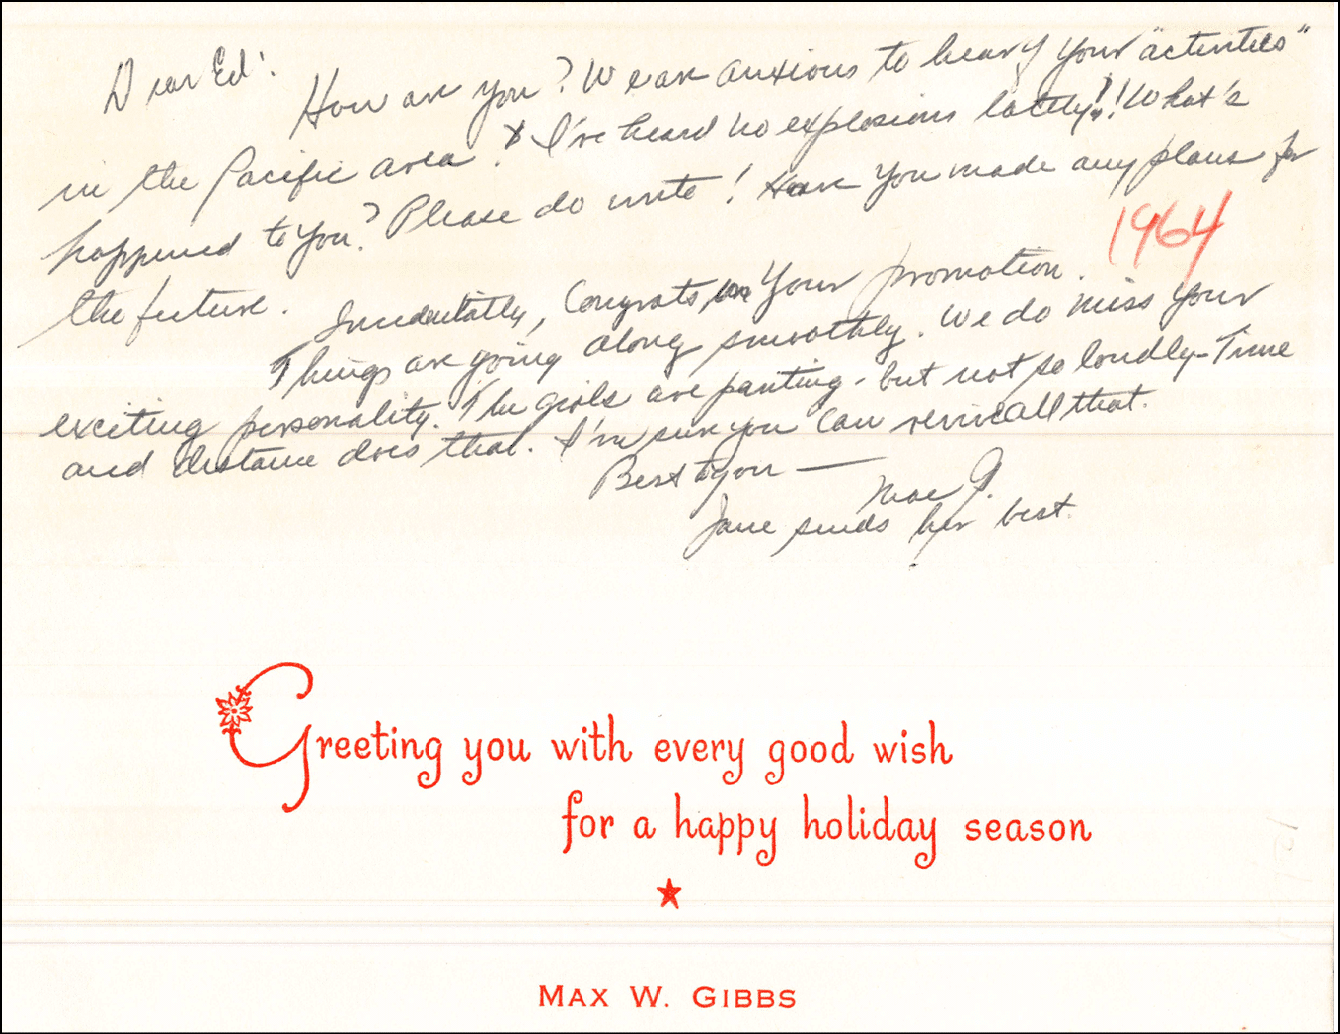 Dear Ed:
How are you? We are anxious to hear of your "activities"
in the Pacific area! I've heard no explosions lately!! What's
happened to you? Please do write! Have you made any plans for
the future.
1964
Incidentally, Congrats on Your promotion.
Things are going along smoothly. We do miss your
exciting personality. The girls are panting - but not so loudly - Time
and distance does that. I'm sure you can revive all that.
Best to you —
Max G.
Jane sends her best.
Greeting you with every good wish
for a happy holiday season
MAX W. GIBBS